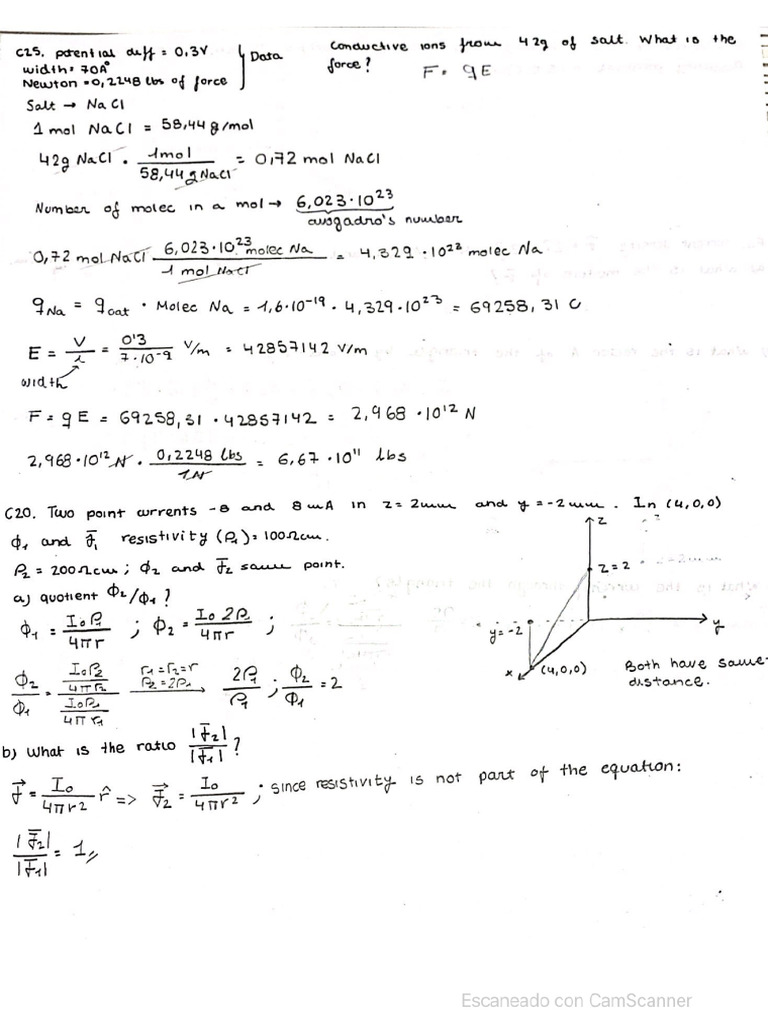 C25. potential diff = 0,3V
width = 70A°
Newton = 0,2248 lbs of force
Data
Conductive ions from 42g of salt. What is the
force?
F = qE
Salt → NaCl
1 mol NaCl = 58,44 g/mol
42g NaCl · 1mol / 58,44 g NaCl = 0,72 mol NaCl
Number of molec in a mol → 6,023·10^23
avogadro's number
0,72 mol NaCl · 6,023·10^23 molec Na / 1 mol NaCl = 4,329·10^23 molec Na
q_Na = q_cat · Molec Na = 1,6·10^-19 · 4,329·10^23 = 69258,31 C
E = V/i = 0'3 / 7·10^-9 V/m = 42857142 V/m
width
F = qE = 69258,31 · 42857142 = 2,968 · 10^12 N
2,968·10^12 N · 0,2248 lbs / 1N = 6,67·10^11 lbs
C20. Two point currents -8 and 8mA in z = 2mm and y = -2mm. In (4,0,0)
ϕ1 and J̅1 resistivity (ρ1) = 100Ωcm.
ρ2 = 200Ωcm; ϕ2 and J̅2 same point.
a) quotient ϕ2/ϕ1?
ϕ1 = I0 ρ1 / 4πr ; ϕ2 = I0 2ρ1 / 4πr ;
ϕ2/ϕ1 = (I0 ρ2 / 4π r2) / (I0 ρ1 / 4π r1) r1=r2=r ρ2=2ρ1 → 2ρ1/ρ1 ; ϕ2/ϕ1 = 2
z
z = 2
y = -2
y
x
(4,0,0)
Both have same
distance.
b) What is the ratio |J̅2|/|J̅1| ?
J⃗ = I0 / 4πr² r̂ => J⃗2 = I0 / 4πr² ; since resistivity is not part of the equation:
|J̅2| / |J̅1| = 1
Escaneado con CamScanner